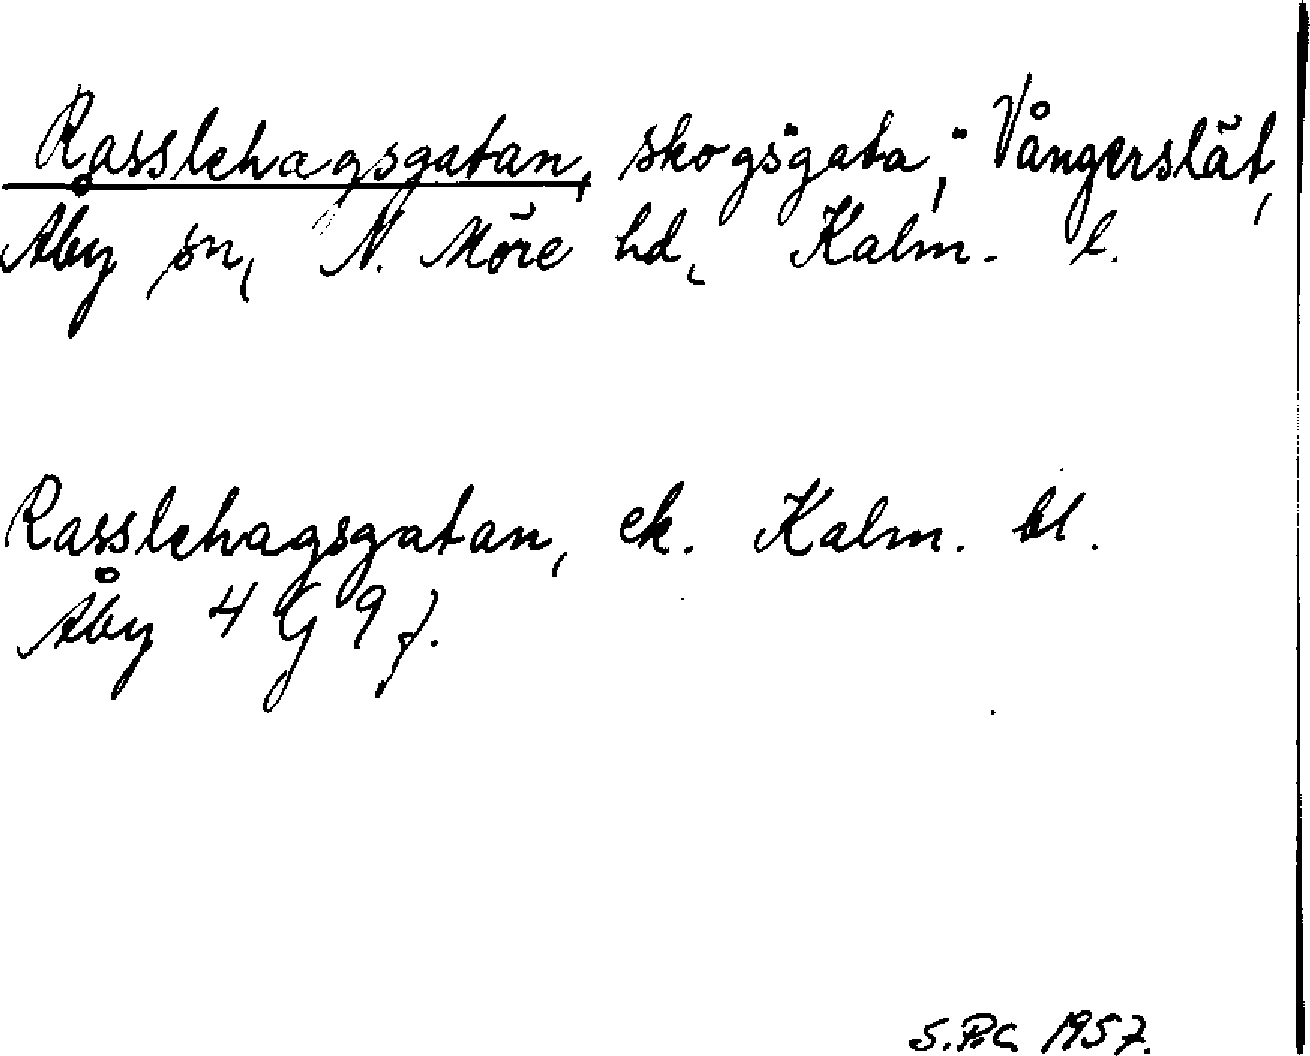 Rasslehagsgatan, skogsgata, Vångerslät,
Åby sn, N. Möre hd, Kalm. l.
Rasslehagsgatan, ek. Kalm. bl.
Åby 4 G 9 f.
1957.